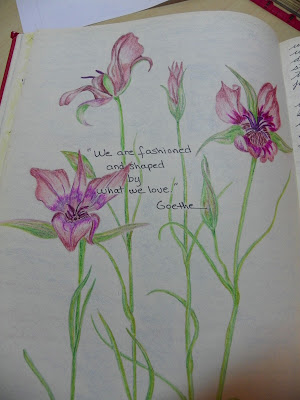 "We are fashioned
and shaped
by
what we love."
Goethe